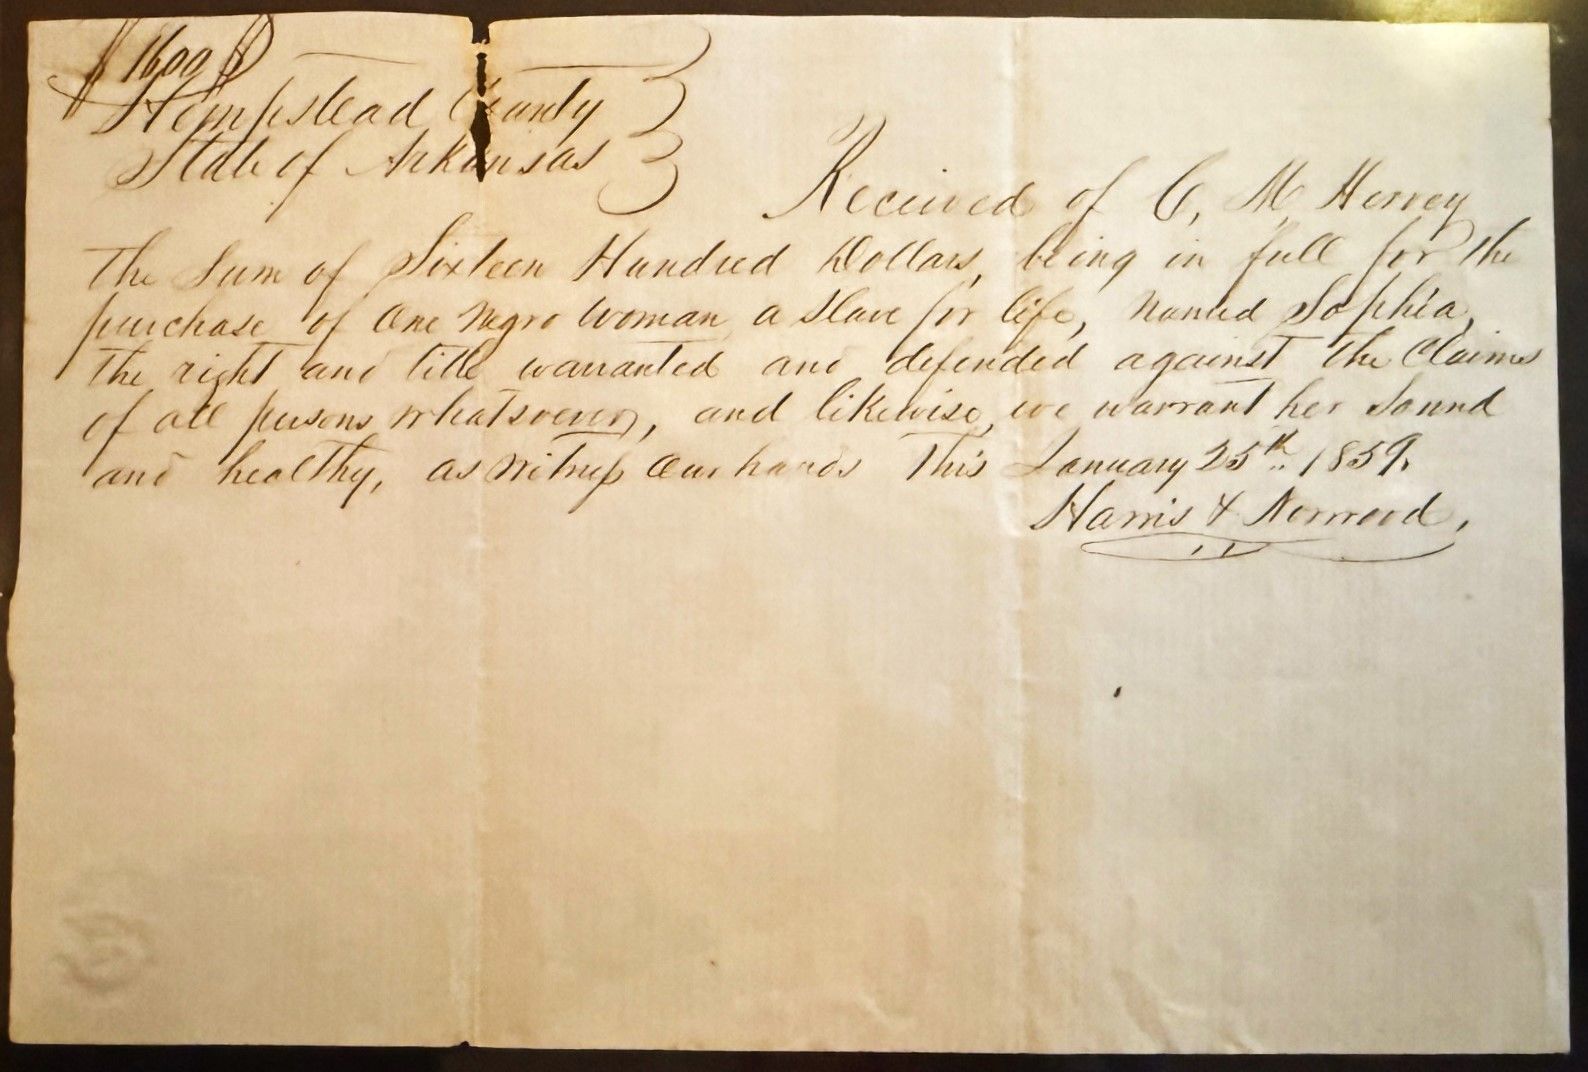 $1600$
Hempstead County
State of Arkansas
Received of C. M. Hervey
the Sum of Sixteen Hundred Dollars, being in full for the
purchase of One Negro Woman a Slave for life, Named Sophia,
the right and title warranted and defended against the Claims
of all persons whatsoever, and likewise, we warrant her Sound
and healthy, as Witness Our hands This January 25th 1859.
Harris & Norwood,